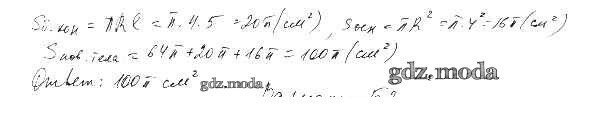 Sб.кон = πRl = π·4·5 = 20π (см²), Sосн = πR² = π·4² = 16π (см²)
Sпов.тела = 64π + 20π + 16π = 100π (см²)
Ответ: 100π см²
gdz.moda
gdz.moda